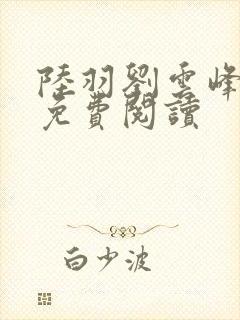 陸羽劉雲峰
免費閱讀
白少波